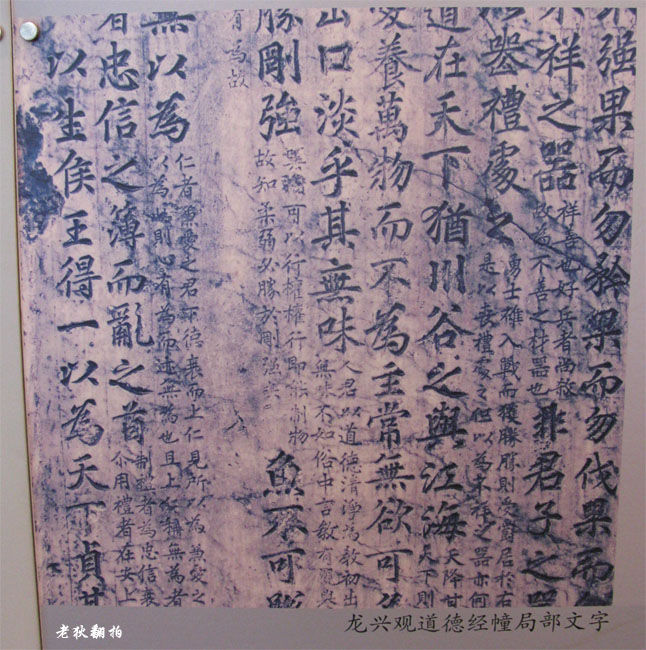 强果而勿矜果而勿伐果而
不祥之器
祥善也好兵者尚殺
故為不善之材器也
非君子之器
禮處之
勇士雄入戰而獲勝勝則受賞居於右
是以喪禮處之但以為不祥之器亦何
道在天下猶川谷之與江海
天降甘
天下則
愛養萬物而不為主常無欲可
出口淡乎其無味
人君以道德清淨為教初出
無味不如俗中言教有
勝剛強
可以行權權行即能制物
故知柔弱必勝於剛強矣
魚不可
有為故
無以為
仁者兼愛之君下德衰而上仁見所以為兼愛之
以為此則心有為而迹無為也且上仁無為者
者忠信之薄而亂之首
制禮者為忠信衰
不用禮者在安上
以生侯王得一以為天下貞其
龙兴观道德经幢局部文字
老狄翻拍